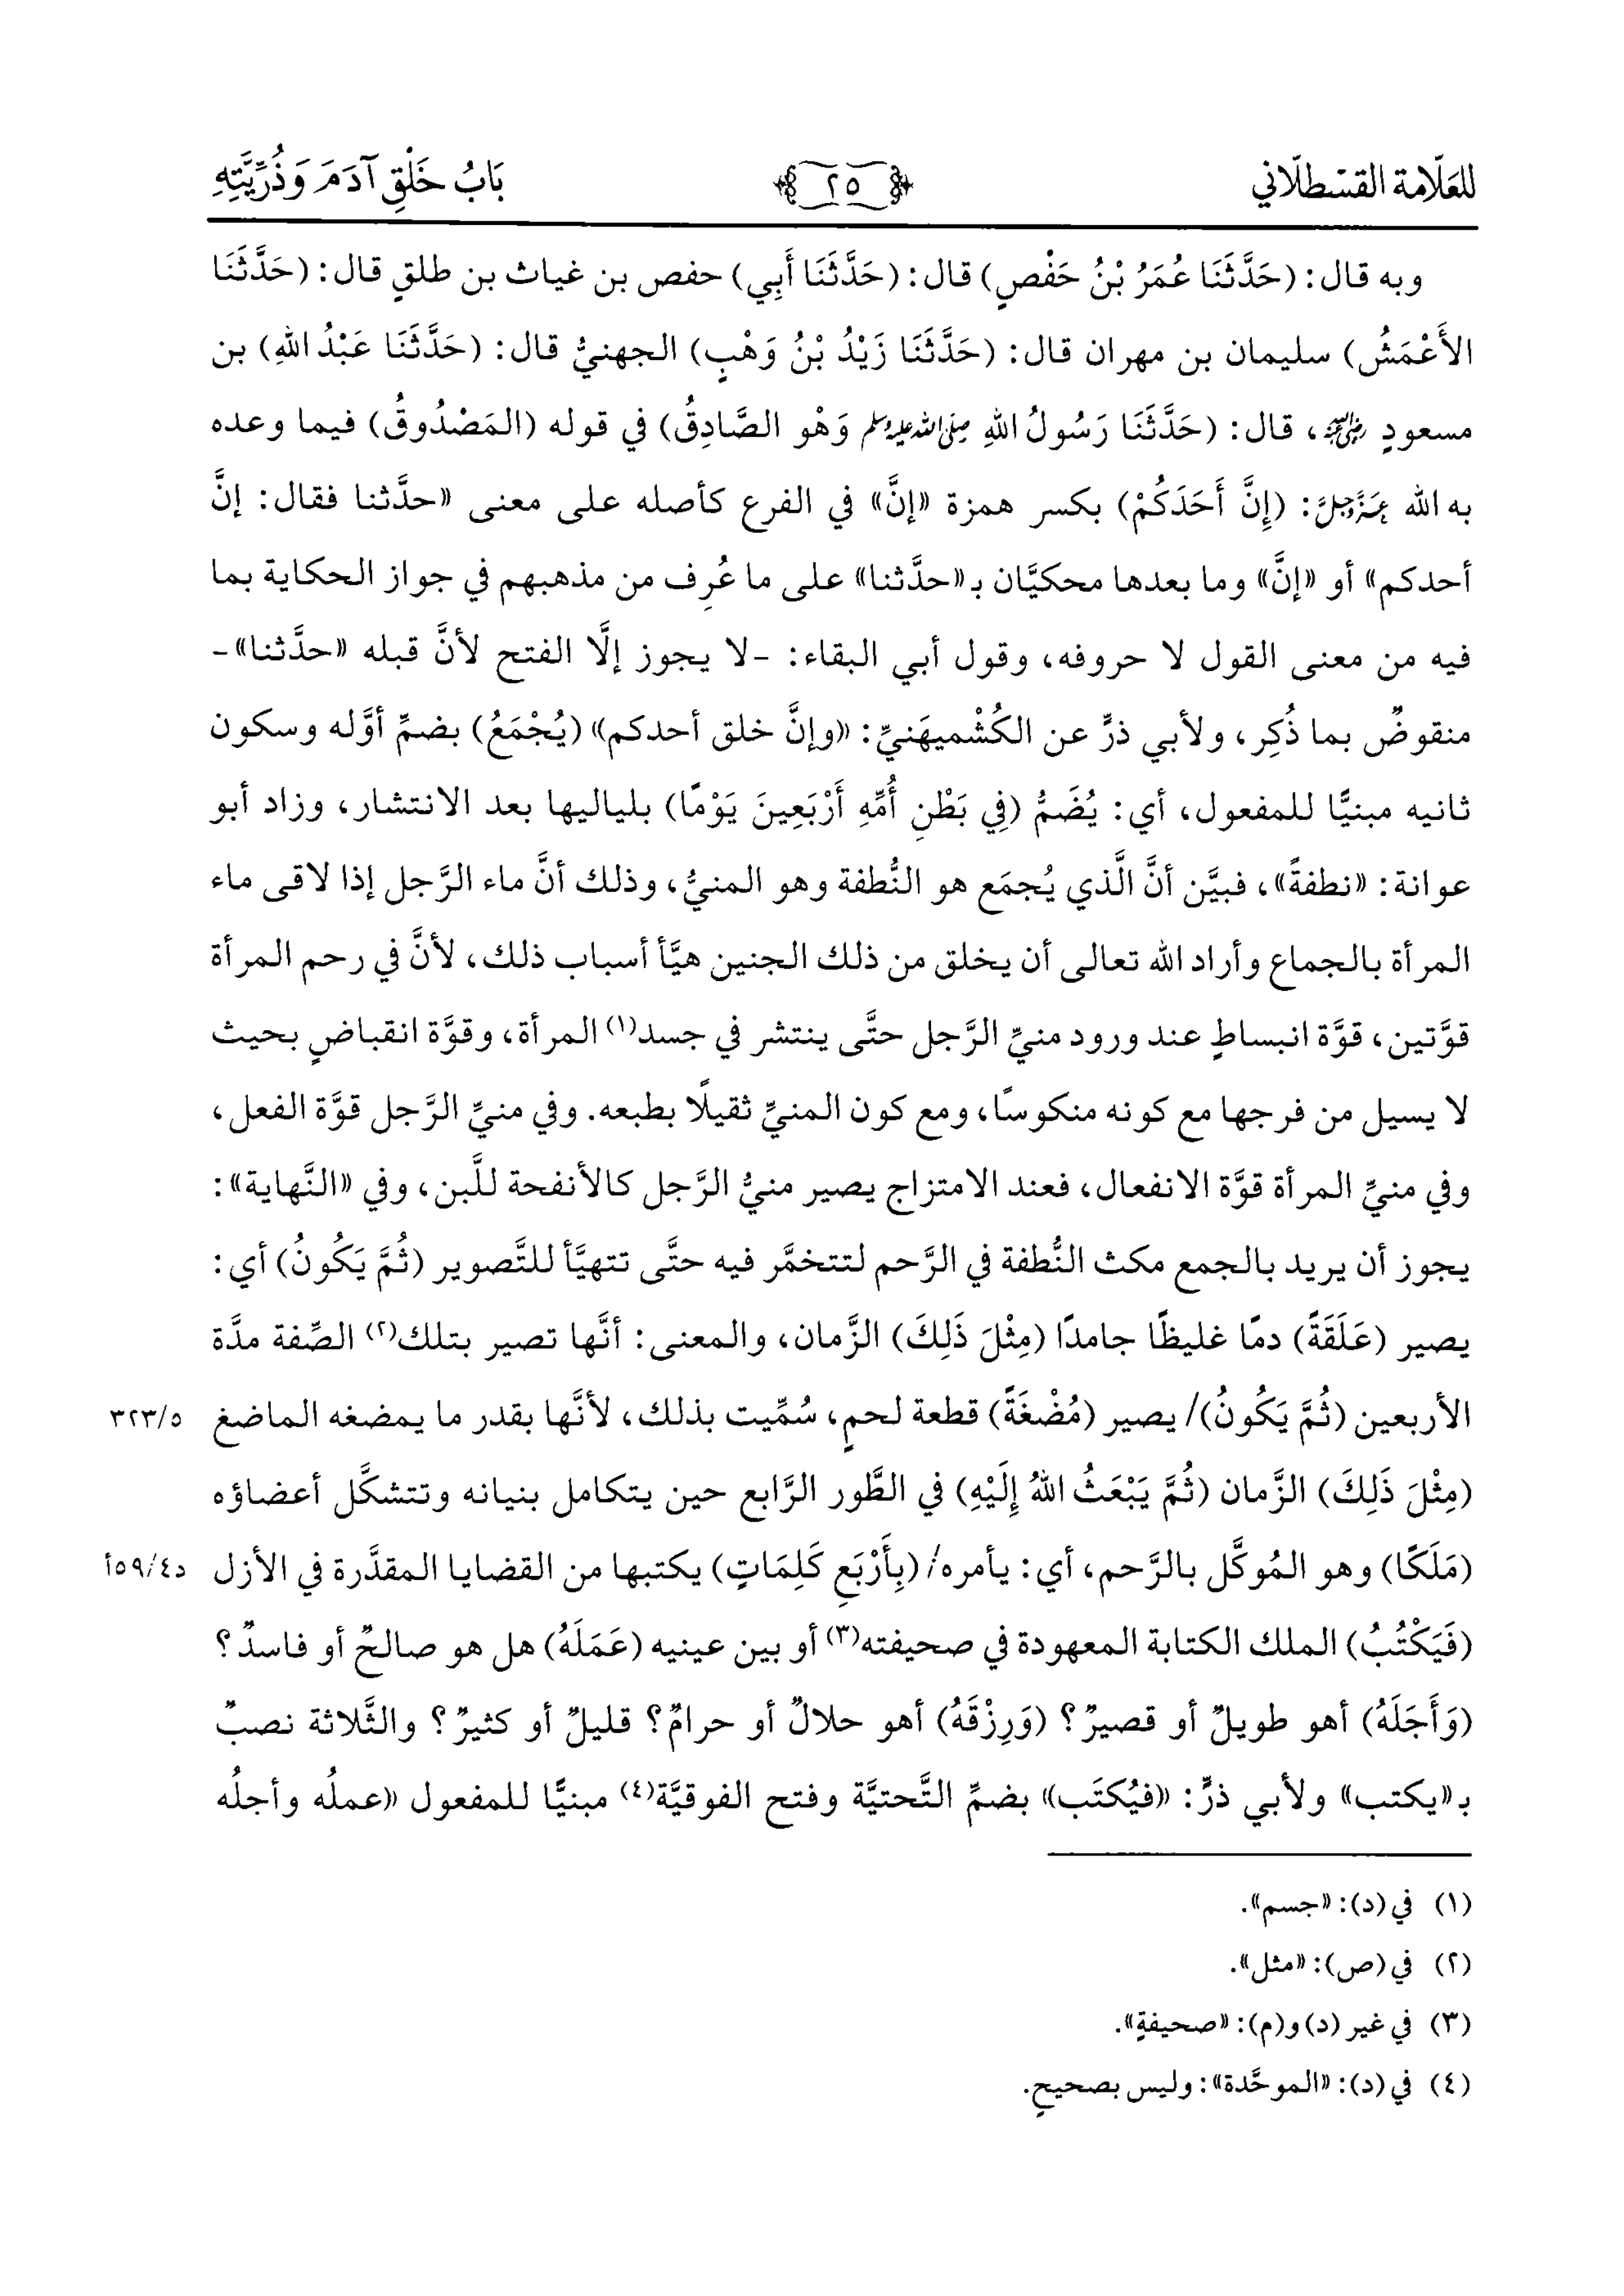 للعلّامة القسطلّاني
٢٥
بَابُ خَلْقِ آدَمَ وَذُرِّيَّتِهِ
وبه قال: (حَدَّثَنَا عُمَرُ بْنُ حَفْصٍ) قال: (حَدَّثَنَا أَبِي) حفص بن غياث بن طلقٍ قال: (حَدَّثَنَا
الأَعْمَشُ) سليمان بن مهران قال: (حَدَّثَنَا زَيْدُ بْنُ وَهْبٍ) الجهنيُّ قال: (حَدَّثَنَا عَبْدُ اللهِ) بن
مسعودٍ رضي الله عنه، قال: (حَدَّثَنَا رَسُولُ اللهِ صلى الله عليه وسلم وَهْو الصَّادِقُ) في قوله (المَصْدُوقُ) فيما وعده
به الله عَزَّوَجَلَّ: (إِنَّ أَحَدَكُمْ) بكسر همزة «إنَّ» في الفرع كأصله على معنى «حدَّثنا فقال: إنَّ
أحدكم» أو «إنَّ» وما بعدها محكيَّان بـ«حدَّثنا» على ما عُرِف من مذهبهم في جواز الحكاية بما
فيه من معنى القول لا حروفه، وقول أبي البقاء: -لا يجوز إلَّا الفتح لأنَّ قبله «حدَّثنا»-
منقوضٌ بما ذُكِر، ولأبي ذرٍّ عن الكُشْميهَنيِّ: «وإنَّ خلق أحدكم» (يُجْمَعُ) بضمِّ أوَّله وسكون
ثانيه مبنيًّا للمفعول، أي: يُضَمُّ (فِي بَطْنِ أُمِّهِ أَرْبَعِينَ يَوْمًا) بلياليها بعد الانتشار، وزاد أبو
عوانة: «نطفةً»، فبيَّن أنَّ الَّذي يُجمَع هو النُّطفة وهو المنيُّ، وذلك أنَّ ماء الرَّجل إذا لاقى ماء
المرأة بالجماع وأراد الله تعالى أن يخلق من ذلك الجنين هيَّأ أسباب ذلك، لأنَّ في رحم المرأة
قوَّتين، قوَّة انبساطٍ عند ورود منيِّ الرَّجل حتَّى ينتشر في جسد(١) المرأة، وقوَّة انقباضٍ بحيث
لا يسيل من فرجها مع كونه منكوسًا، ومع كون المنيِّ ثقيلًا بطبعه. وفي منيِّ الرَّجل قوَّة الفعل،
وفي منيِّ المرأة قوَّة الانفعال، فعند الامتزاج يصير منيُّ الرَّجل كالأنفحة للَّبن، وفي «النِّهاية»:
يجوز أن يريد بالجمع مكث النُّطفة في الرَّحم لتتخمَّر فيه حتَّى تتهيَّأ للتَّصوير (ثُمَّ يَكُونُ) أي:
يصير (عَلَقَةً) دمًا غليظًا جامدًا (مِثْلَ ذَلِكَ) الزَّمان، والمعنى: أنَّها تصير بتلك(٢) الصِّفة مدَّة
الأربعين (ثُمَّ يَكُونُ)/ يصير (مُضْغَةً) قطعة لحمٍ، سُمِّيت بذلك، لأنَّها بقدر ما يمضغه الماضغ ٣٢٣/٥
(مِثْلَ ذَلِكَ) الزَّمان (ثُمَّ يَبْعَثُ اللهُ إِلَيْهِ) في الطَّور الرَّابع حين يتكامل بنيانه وتتشكَّل أعضاؤه
(مَلَكًا) وهو المُوكَّل بالرَّحم، أي: يأمره/ (بِأَرْبَعِ كَلِمَاتٍ) يكتبها من القضايا المقدَّرة في الأزل د٥٩/٤أ
(فَيَكْتُبُ) الملك الكتابة المعهودة في صحيفته(٣) أو بين عينيه (عَمَلَهُ) هل هو صالحٌ أو فاسدٌ؟
(وَأَجَلَهُ) أهو طويلٌ أو قصيرٌ؟ (وَرِزْقَهُ) أهو حلالٌ أو حرامٌ؟ قليلٌ أو كثيرٌ؟ والثَّلاثة نصبٌ
بـ«يكتب» ولأبي ذرٍّ: «فيُكتَب» بضمِّ التَّحتيَّة وفتح الفوقيَّة(٤) مبنيًّا للمفعول «عملُه وأجلُه
(١) في (د): «جسم».
(٢) في (ص): «مثل».
(٣) في غير (د) و(م): «صحيفةٍ».
(٤) في (د): «الموحَّدة»: وليس بصحيحٍ.